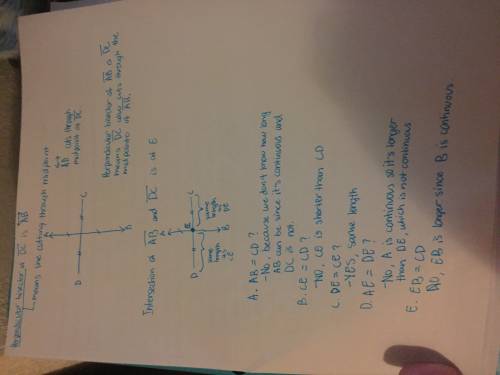 Perpendicular bisector of DC is AB
means line cutting through midpoint
D
C
A
B
AB cuts through
midpoint of DC.
Perpendicular bisector of AB is DC
means DC line cuts through the
midpoint of AB.
Intersection of AB and DC is at E
D
C
A
E
B
same length as CE
same length as DE
A. AB = CD?
-No, because we don't know how long
AB can be since it's continuous and
DC is not.
B. CE = CD?
-NO, CE is shorter than CD
C. DE = CE?
-YES, same length
D. AE = DE?
-No, A is continuous so it's longer
than DE, which is not continuous
E. EB = CD
EB is longer since B is continuous.